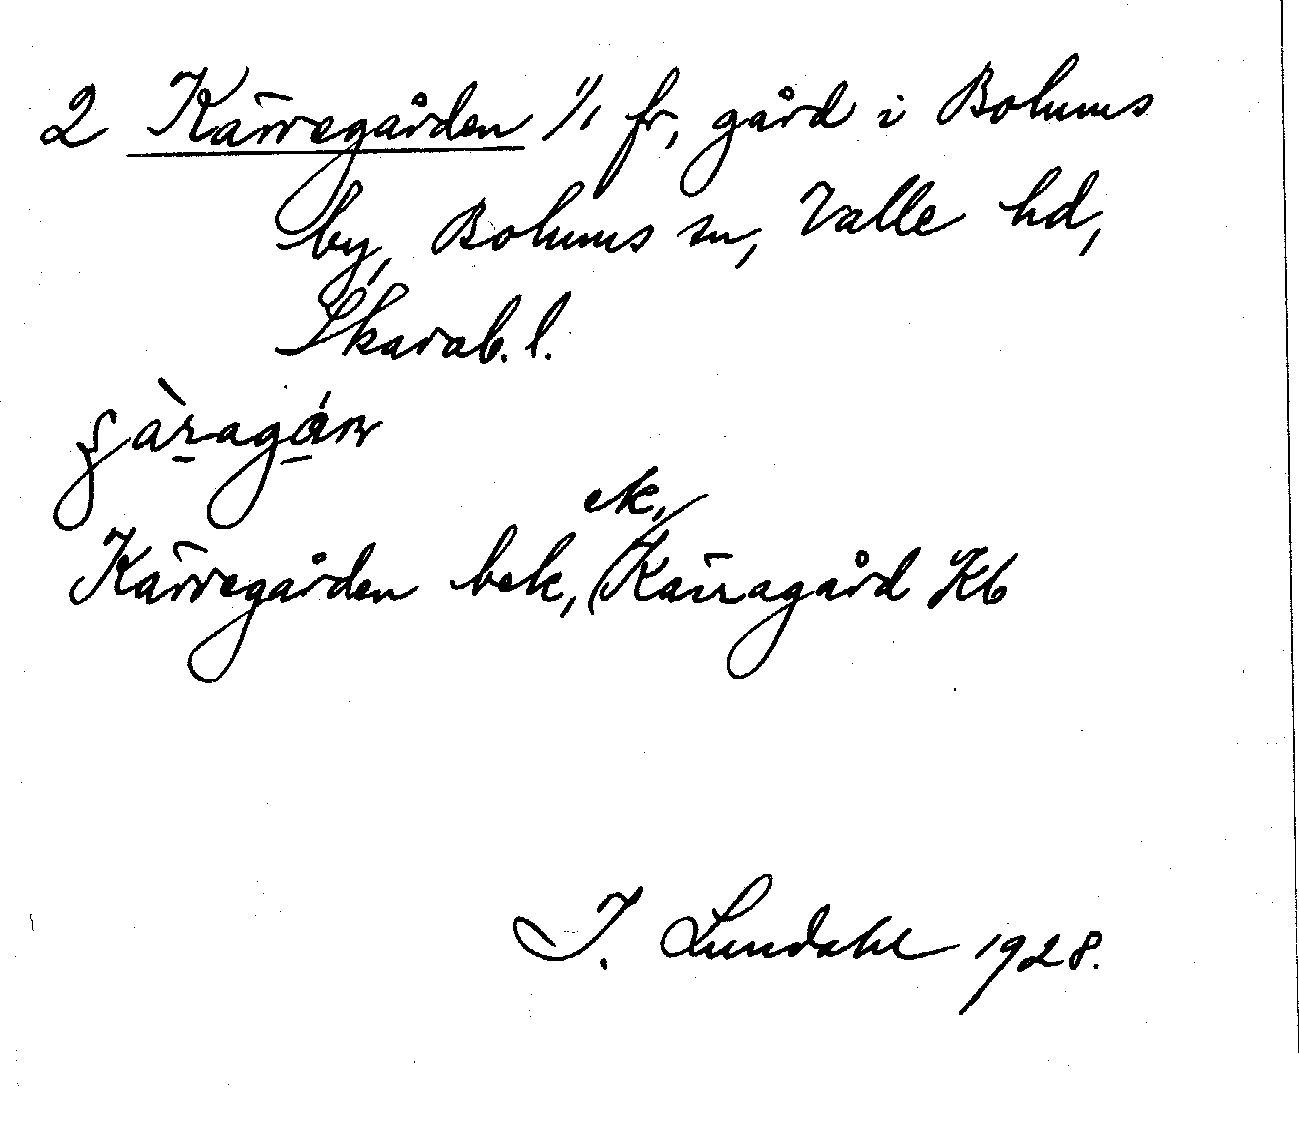 2 Kärregården 1/1 fr, gård i Bolums
by, Bolums sn, Valle hd,
Skarab. l.
Kärregården bek, (ek, Kärragård Kb
I. Lundahl 1928.